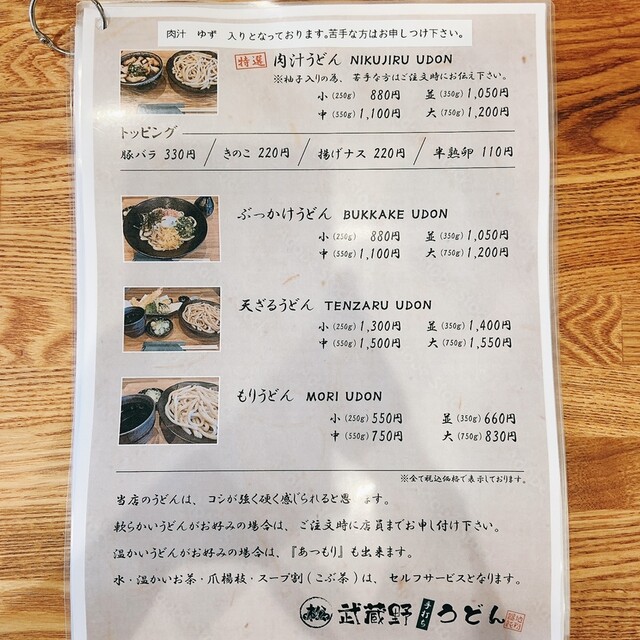 肉汁 ゆず 入りとなっております。苦手な方はお申しつけ下さい。
特選 肉汁うどん NIKUJIRU UDON
※柚子入りの為、苦手な方はご注文時にお伝え下さい。
小(250g) 880円 並(350g)1,050円
中(550g)1,100円 大(750g)1,200円
トッピング
豚バラ 330円 / きのこ 220円 / 揚げナス 220円 / 半熟卵 110円
ぶっかけうどん BUKKAKE UDON
小(250g) 880円 並(350g)1,050円
中(550g)1,100円 大(750g)1,200円
天ざるうどん TENZARU UDON
小(250g)1,300円 並(350g)1,400円
中(550g)1,500円 大(750g)1,550円
もりうどん MORI UDON
小(250g)550円 並(350g)660円
中(550g)750円 大(750g)830円
※全て税込価格で表示しております。
当店のうどんは、コシが強く硬く感じられると思 ます。
軟らかいうどんがお好みの場合は、ご注文時に店員までお申し付け下さい。
温かいうどんがお好みの場合は、『あつもり』も出来ます。
水・温かいお茶・爪楊枝・スープ割(こぶ茶)は、セルフサービスとなります。
武蔵野手打ちうどん